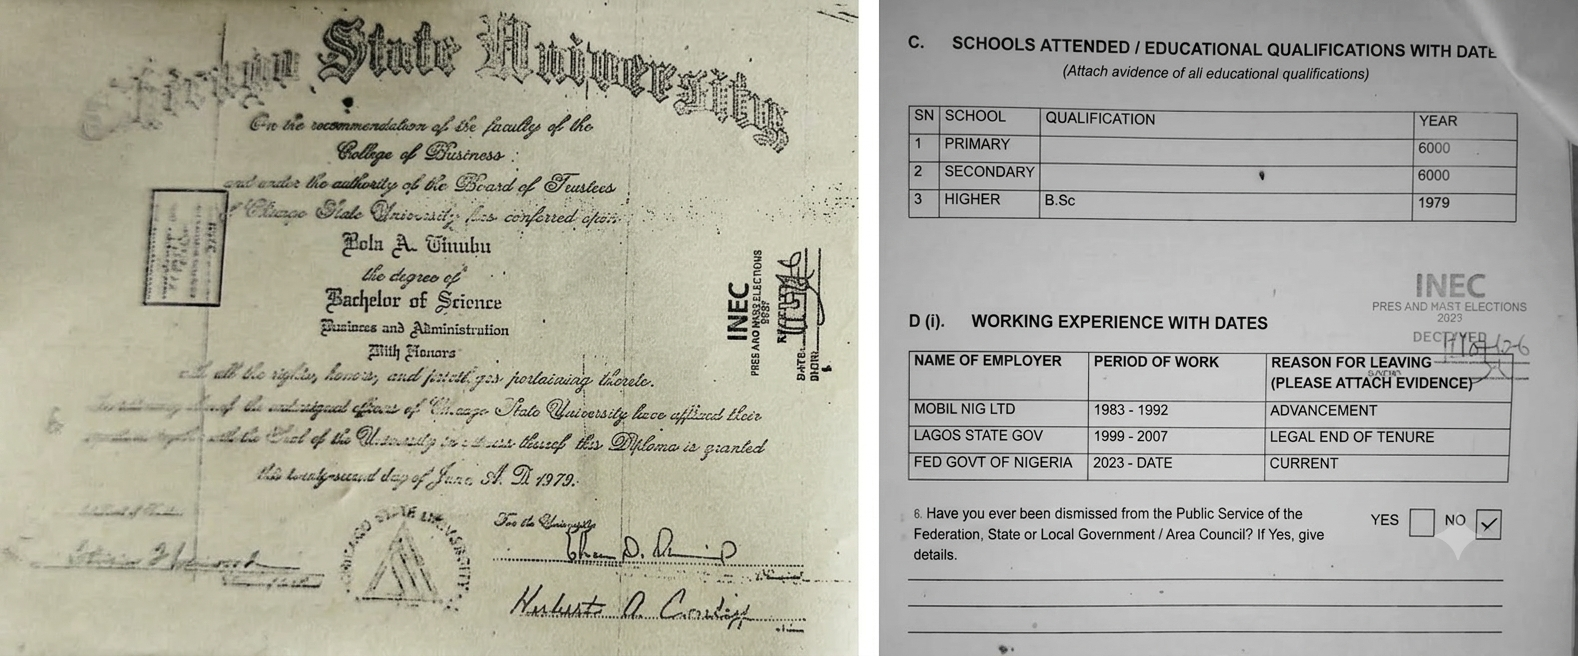 State University
On the recommendation of the faculty of the
College of Business
and under the authority of the Board of Trustees
of Chicago State University has conferred upon
Bola A. Tinubu
the degree of
Bachelor of Science
Businees and Administration
With Honors
all the rights, honors, and pertaining thereto.
of the undersigned officers of Chicago State University have affixed their
with the Seal of the University in witness thereof this Diploma is granted
this twenty-second day of June A. D. 1979.
For the University
CHICAGO STATE UNIVERSITY
INEC
PRES AND ELECTIONS
DATE:
C. SCHOOLS ATTENDED / EDUCATIONAL QUALIFICATIONS WITH DATE
(Attach avidence of all educational qualifications)
SN SCHOOL QUALIFICATION YEAR
1 PRIMARY 6000
2 SECONDARY 6000
3 HIGHER B.Sc 1979
INEC
PRES AND MAST ELECTIONS
2023
D (i). WORKING EXPERIENCE WITH DATES
NAME OF EMPLOYER PERIOD OF WORK REASON FOR LEAVING
(PLEASE ATTACH EVIDENCE)
MOBIL NIG LTD 1983 - 1992 ADVANCEMENT
LAGOS STATE GOV 1999 - 2007 LEGAL END OF TENURE
FED GOVT OF NIGERIA 2023 - DATE CURRENT
6. Have you ever been dismissed from the Public Service of the
Federation, State or Local Government / Area Council? If Yes, give
details.
YES NO